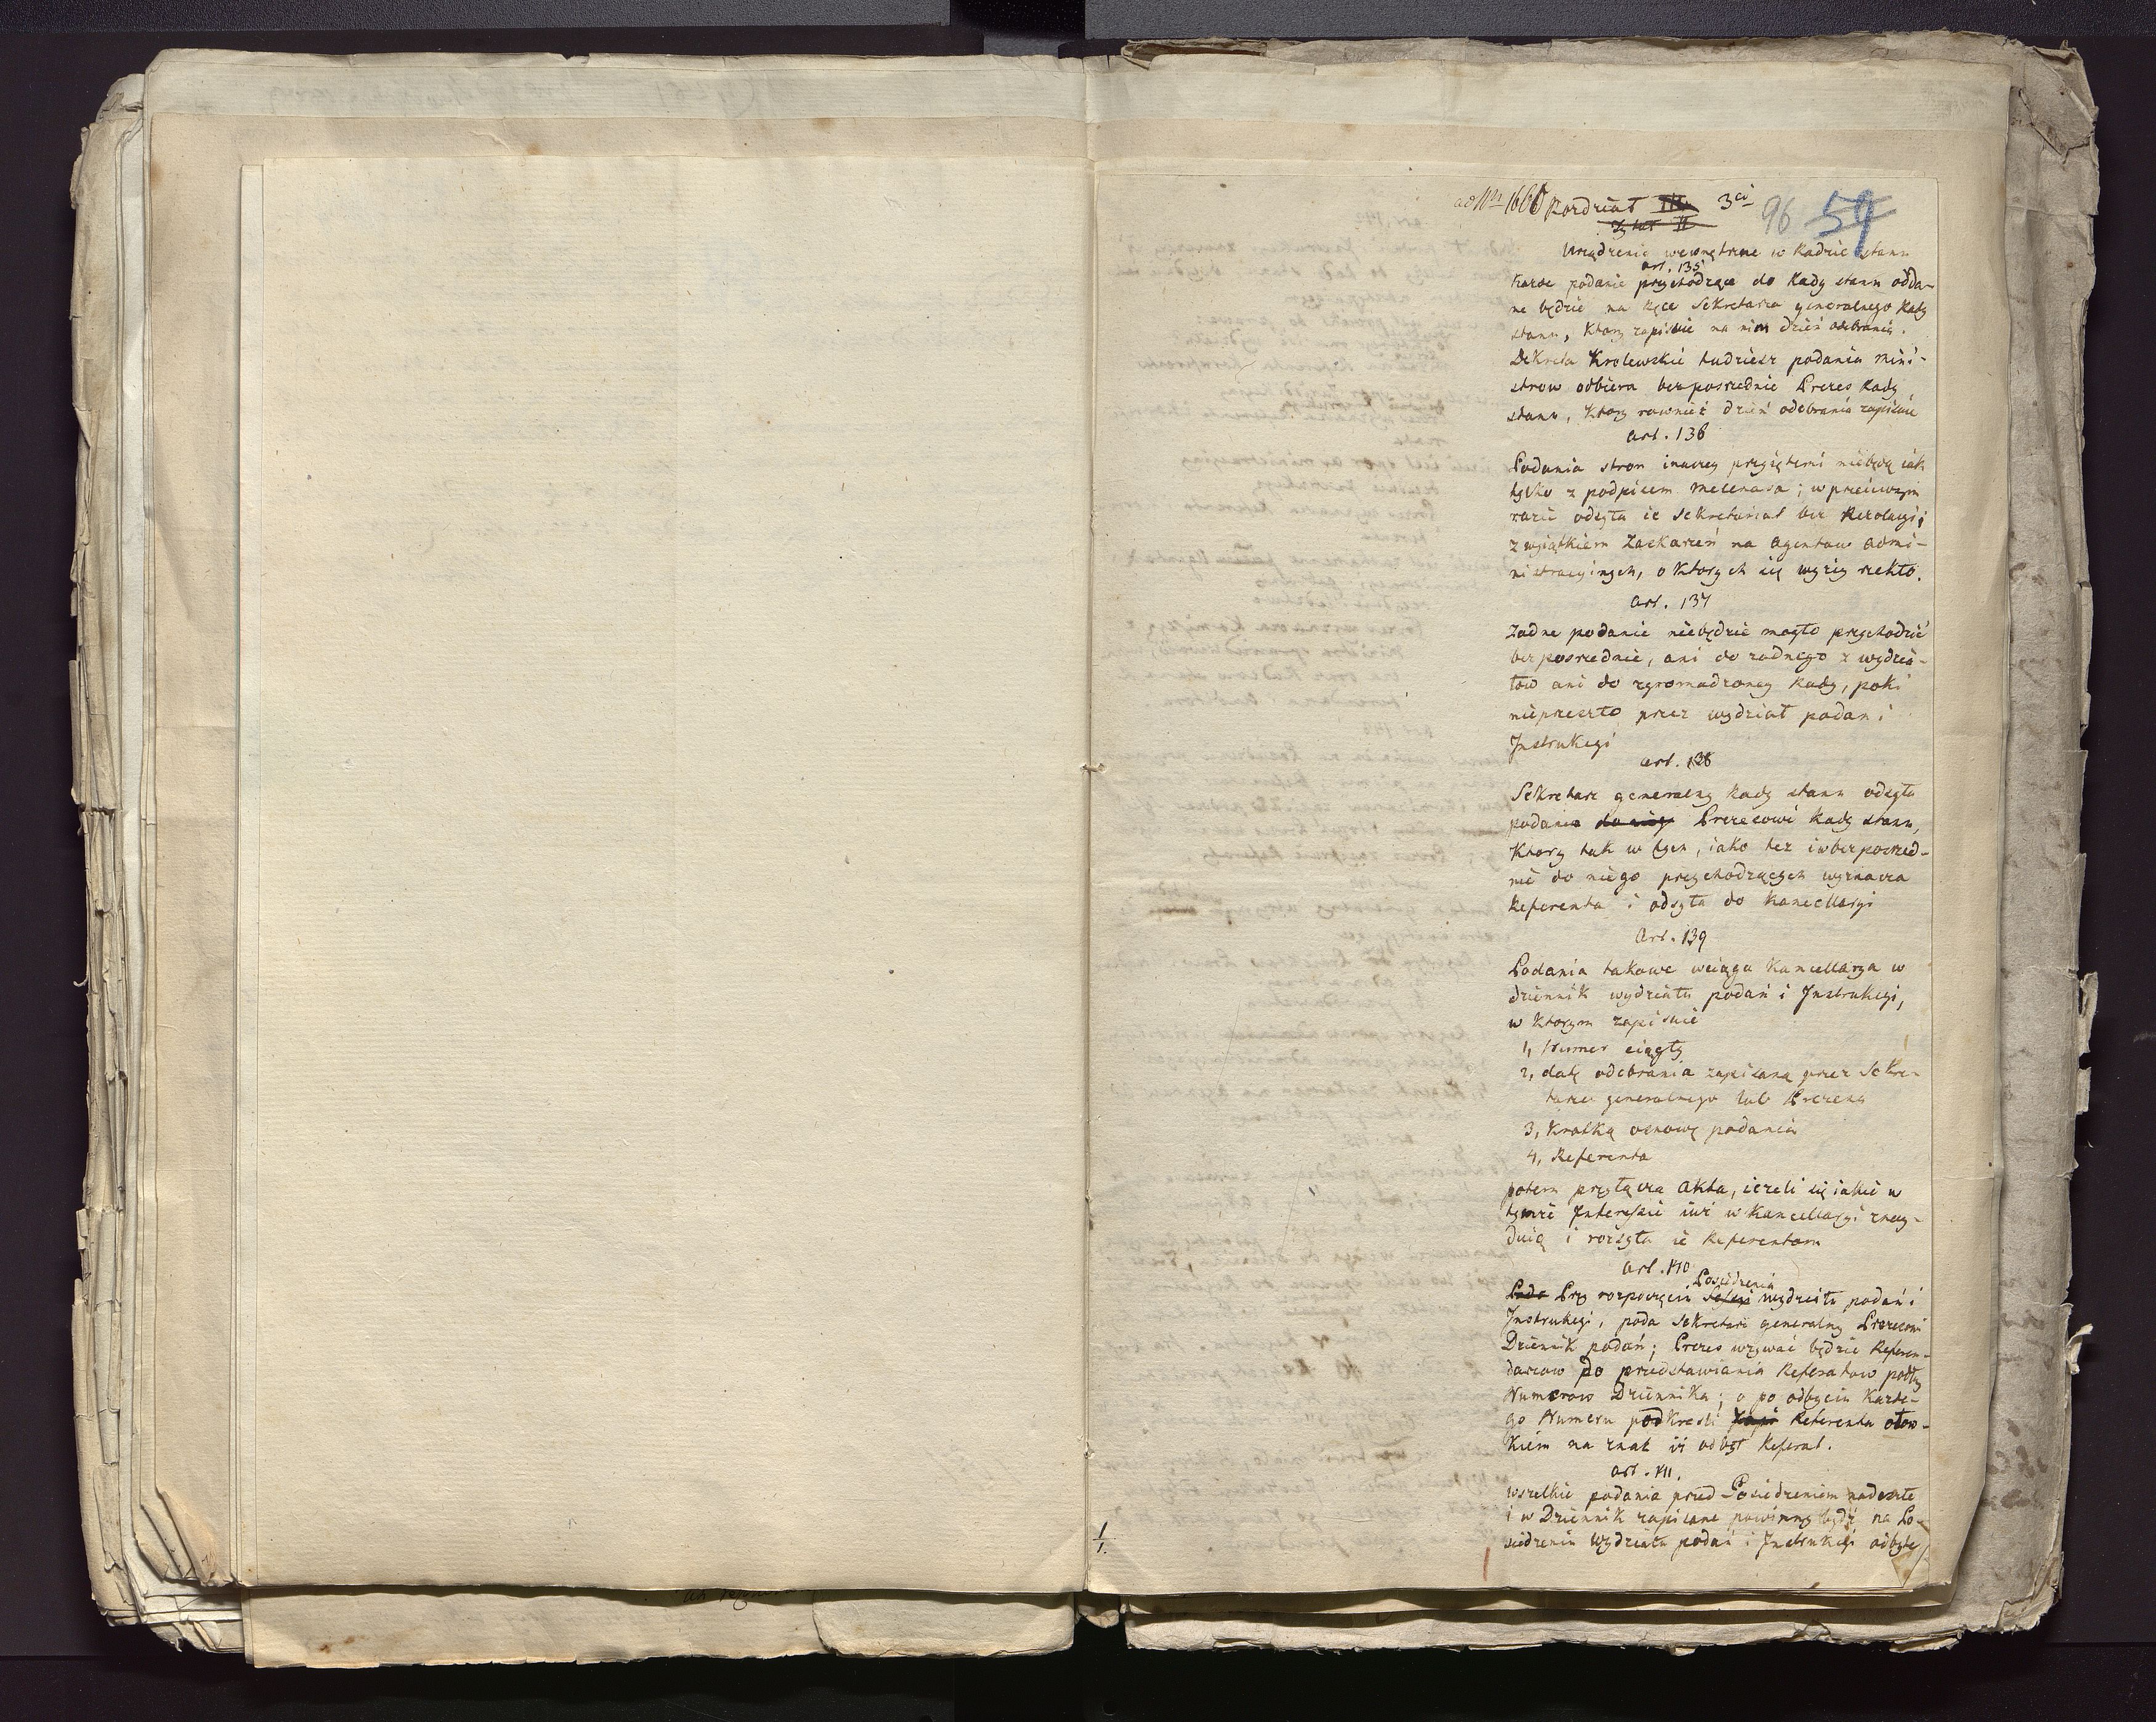 ad Nrm 1660 Rozdział III 3ci 96 59
Tytuł II
Urządzenie wewnętrzne w Radzie stanu
art. 135
Każde podanie przychodzące do Rady stanu odda-
ne będzie na ręce Sekretarza generalnego Rady
stanu, ktory zapisuie na nim dzień odebrania.
Dekreta Krolewskie tudzież podania mini-
strow odbiera bezposrednie Prezes Rady
stanu, ktory rownież dzień odebrania zapisuie
art. 136
Podania stron inaczey przyiętemi niebędą iak
tylko z podpisem mecenasa; w przeciwnym
razie odsyła ie Sekretariat bez Rezolucyi;
z wyiątkiem Zaskarżeń na Agentow Admi-
nistracyinych, o ktorych się wyżey rzekło.
art. 137
Żadne podanie niebędzie mogło przychodzić
bezposrednie, ani do żadnego z wydzia-
łow ani do zgromadzoney Rady, poki
nieprzeszło przez wydział podań i
Instrukcyi
art. 138
Sekretarz generalny Rady stanu odsyła
podania do niey Prezesowi Rady stanu,
ktory tak w tych, iako też i w bezposred-
nie do niego przychodzących wyznacza
Referenta i odsyła do Kancellaryi
Art. 139
Podania takowe wciąga Kancellarya w
dziennik wydziału podań i Instrukcyi,
w ktorym zapisuie
1, Numer ciągły
2, datę odebrania zapisaną przez Sekre-
tarza generalnego lub Prezesa
3, Krotką osnowę podania
4, Referenta
potem przyłącza Akta, ieżeli się iakie w
tymże Interessie iuż w Kancellaryi znay-
duią i rozsyła ie Referentom
art. 140
Posiedzenia
Poda Przy rozpoczęciu Sessyi wydziału podań i
Instrukcyi, poda Sekretarz generalny Prezesowi
Dziennik podań; Prezes wzywać będzie Referen-
darzow do przedstawiania Referatow podług
Numerow Dziennika; a po odbyciu Każde-
go Numeru podkreśli Referenta ołow-
kiem na znak iż odbył Referat.
art. 141.
Wszelkie podania przed Posiedzeniem nadeszłe
i w Dziennik zapisane powinny bydź na Po-
siedzeniu Wydziału podań i Instrukcyi odbyte,
1
1.